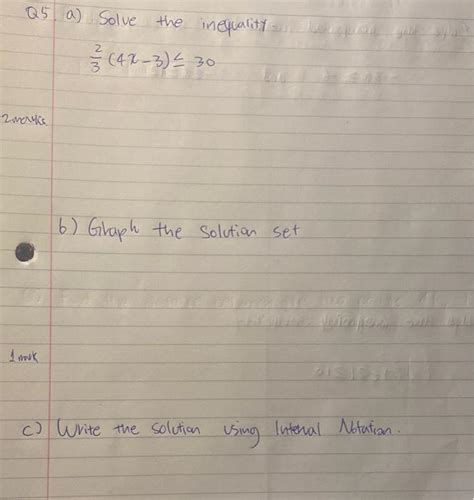 Q5 a) Solve the inequality
2/3 (4x-3) ≤ 30
2 marks
b) Graph the solution set
1 mark
c) Write the solution using Interval Notation.